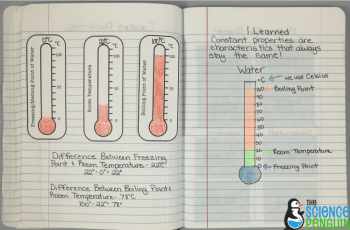 0°C
22°C
100°C
°C
100
50
0
Freezing/Melting Point of Water
°C
100
50
0
Room Temperature
°C
100
50
0
Boiling Point of Water
Difference Between Freezing
Point & Room Temperature = 22°C
22° - 0° = 22°
Difference Between Boiling Point &
Room Temperature - 78°C
100° - 22° = 78°
I Learned
Constant properties are
characteristics that always
stay the same!
Water
°C
we use Celsius
110
100
90
80
70
60
50
40
30
20
10
0
Boiling Point
Room Temperature
Freezing Point
THE
Science
PENGUIN